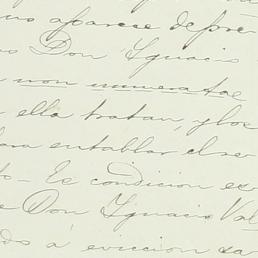 aparece de pre
Don Ignacio
non numeratae
ella tratan, y los
para entablar el re
- Es condicion es
Don Ignacio Val
dos á eviccion sa